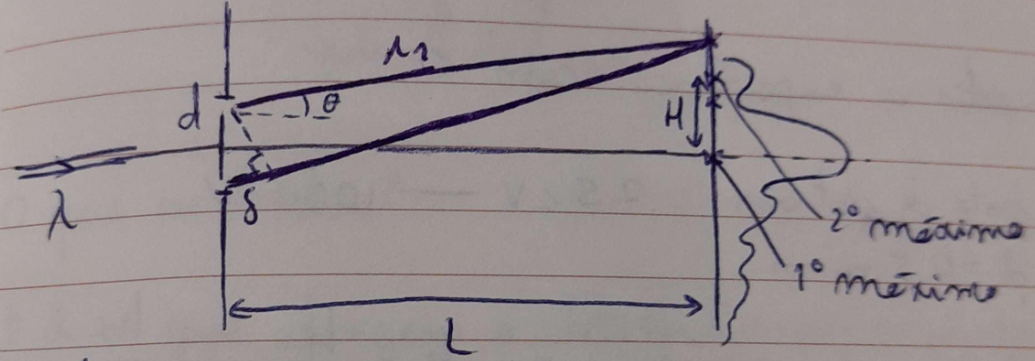 r1
d
θ
H
λ
δ
2º máximo
1º máximo
L